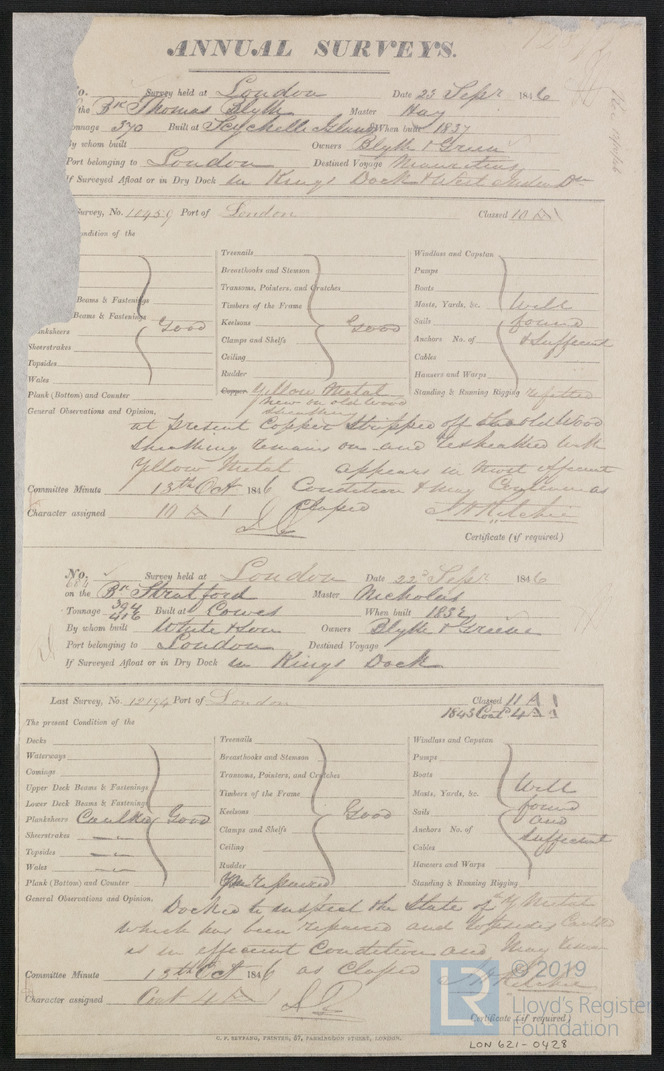 ANNUAL SURVEYS.
o. Survey held at London Date 23 Sepr 1846
the Bk Thomas Blyth Master Hay
onnage 370 Built at Seychelle Island When built 1837
y whom built Owners Blyth & Green
Port belonging to London Destined Voyage Mauritius
If Surveyed Afloat or in Dry Dock in Kings Dock & West India Dk
Survey, No. 11459 Port of London Classed 10 A 1
ondition of the
Treenails Windlass and Capstan
Breasthooks and Stemson Pumps
Transoms, Pointers, and Crutches Boats
Beams & Fastenings Timbers of the Frame Masts, Yards, &c. Well
Beams & Fastenings Keelsons Good Sails found
anksheers Good Clamps and Shelfs Anchors No. of & Sufficient
Sheerstrakes Ceiling Cables
Topsides Rudder Hausers and Warps
Wales Copper Yellow Metal Standing & Running Rigging refitted
Plank (Bottom) and Counter New on old Wood
General Observations and Opinion, sheathing
at present Copper Stripped off the old Wood
sheathing remains on and resheathed with
Yellow Metal appears in most efficient
Committee Minute 13th Oct 1846 Condition & may Continue as
Character assigned 10 A 1 Classed J H Ritchie
Certificate (if required)
No. Survey held at London Date 22d Sepr 1846
684
on the Bk Stratford Master Nicholas
Tonnage 394 Built at Cowes When built 1832
416
By whom built White & Son Owners Blyth & Greene
Port belonging to London Destined Voyage
If Surveyed Afloat or in Dry Dock in Kings Dock
Last Survey, No. 12194 Port of London Classed 11 A 1
1843 Cont 4 A 1
The present Condition of the
Decks Treenails Windlass and Capstan
Waterways Breasthooks and Stemson Pumps
Comings Transoms, Pointers, and Crutches Boats
Upper Deck Beams & Fastenings Timbers of the Frame Masts, Yards, &c. Well
Lower Deck Beams & Fastenings Keelsons Good Sails found
Planksheers Caulked Good Clamps and Shelfs Anchors No. of and
Sheerstrakes Ceiling Cables Sufficient
Topsides Rudder Hausers and Warps
Wales repaired Standing & Running Rigging
Plank (Bottom) and Counter
General Observations and Opinion,
Docked to inspect the State of the Y Metal
which has been repaired and topsides Caulked
is in efficient Condition and may
Committee Minute 13th Oct 1846 as Classed J H Ritchie
Character assigned Cont 4 A 1
Certificate (if required)
C. F. SEYFANG, PRINTER, 57, FARRINGDON STREET, LONDON.
LR © 2019
Lloyd's Register
Foundation
LON 621-0428